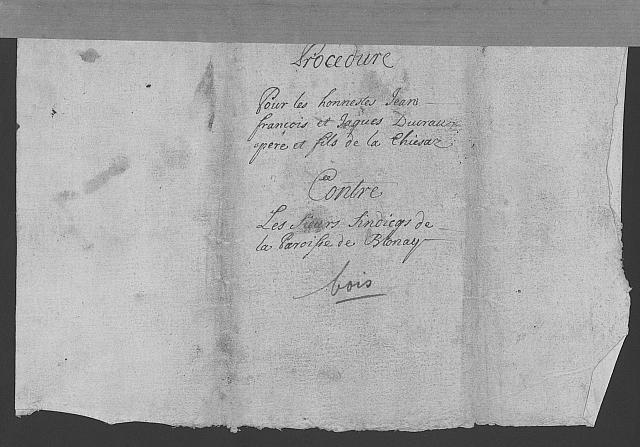 Procedure
Pour les honnestes Jean
françois et Jaques Ducraux
pere et fils de la Chiesaz
Contre
Les Sieurs Sindicqs de
la Paroisse de Blonay
bois